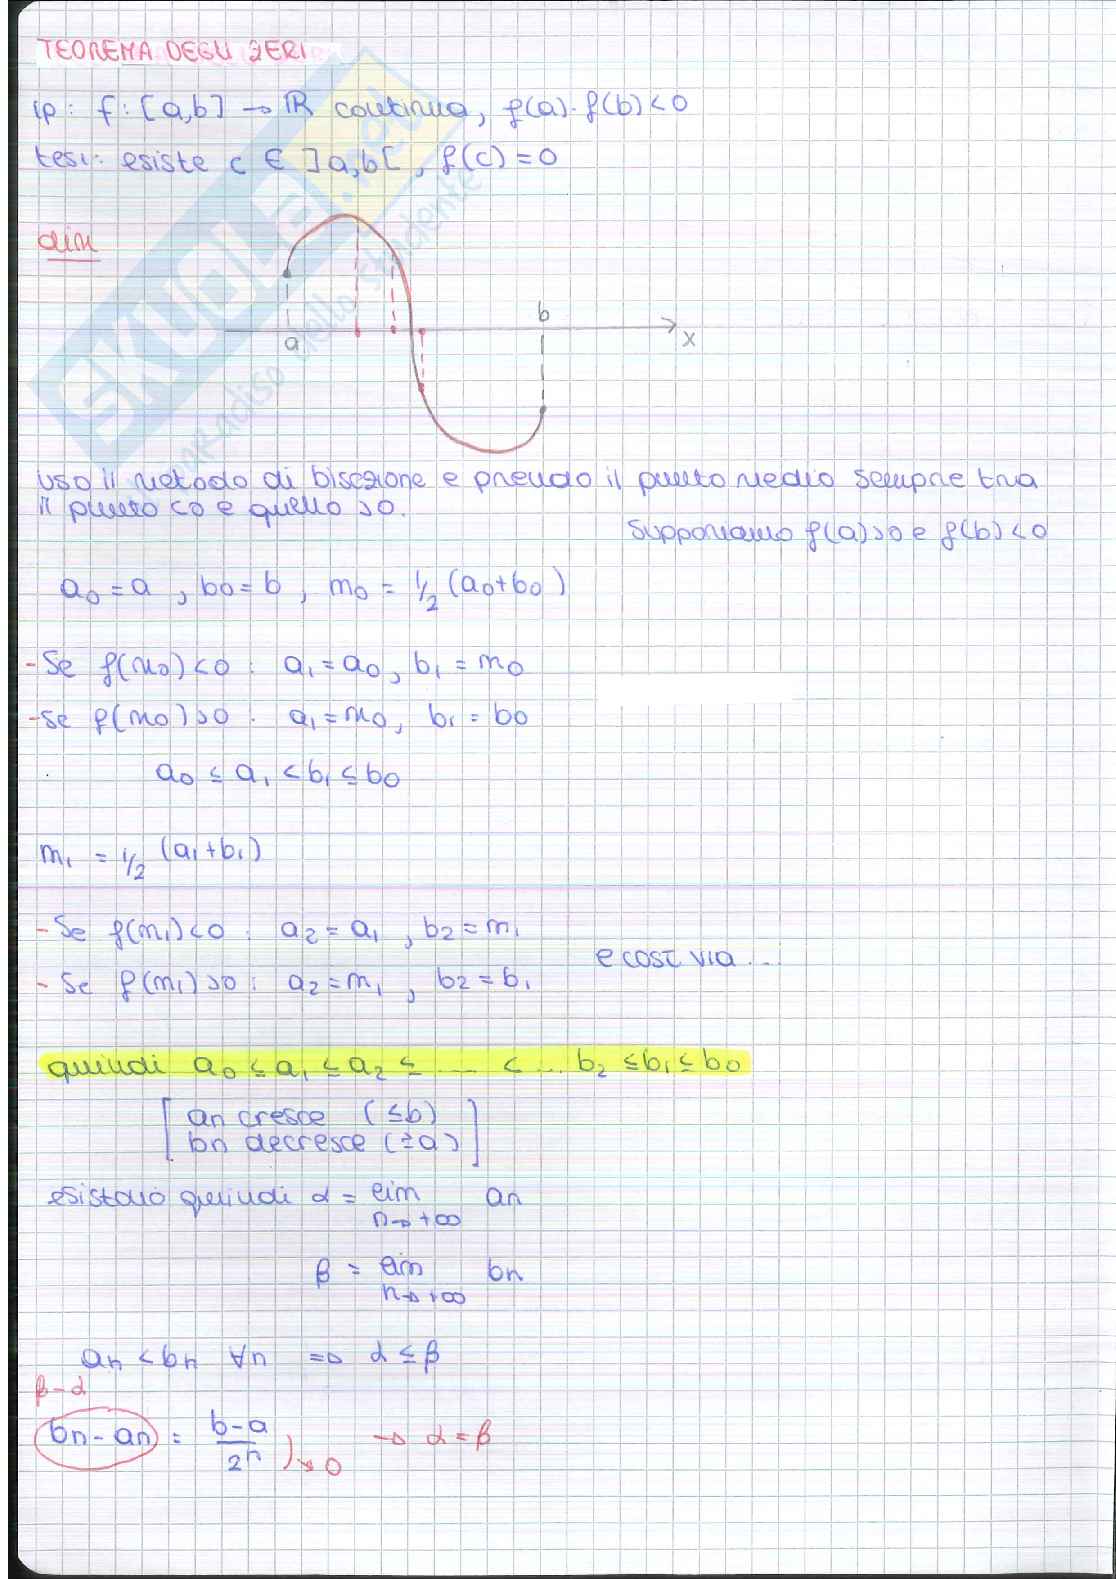 TEOREMA DEGLI ZERI
ip: f: [a,b] → ℝ continua, f(a)·f(b)<0
tesi: esiste c ∈ ]a,b[, f(c)=0
dim
a
b
x
SKUOLA.net
paradiso dello studente
uso il metodo di bisezione e prendo il punto medio sempre tra
il punto <0 e quello >0.
Supponiamo f(a)>0 e f(b)<0
a₀ = a , b₀ = b , m₀ = 1/2 (a₀+b₀)
- Se f(m₀)<0 : a₁ = a₀, b₁ = m₀
- Se f(m₀)>0 : a₁ = m₀, b₁ = b₀
a₀ ≤ a₁ < b₁ ≤ b₀
m₁ = 1/2 (a₁+b₁)
- Se f(m₁)<0 : a₂ = a₁ , b₂ = m₁
e così via ...
- Se f(m₁)>0 : a₂ = m₁ , b₂ = b₁
quindi a₀ ≤ a₁ ≤ a₂ ≤ .... < ... b₂ ≤ b₁ ≤ b₀
[ an cresce (≤b)
bn decresce (≥a) ]
esistono quindi α = lim an
n→+∞
β = lim bn
n→+∞
an < bn ∀n ⇒ α ≤ β
β-α
bn - an = b-a/2ⁿ → 0 → α = β